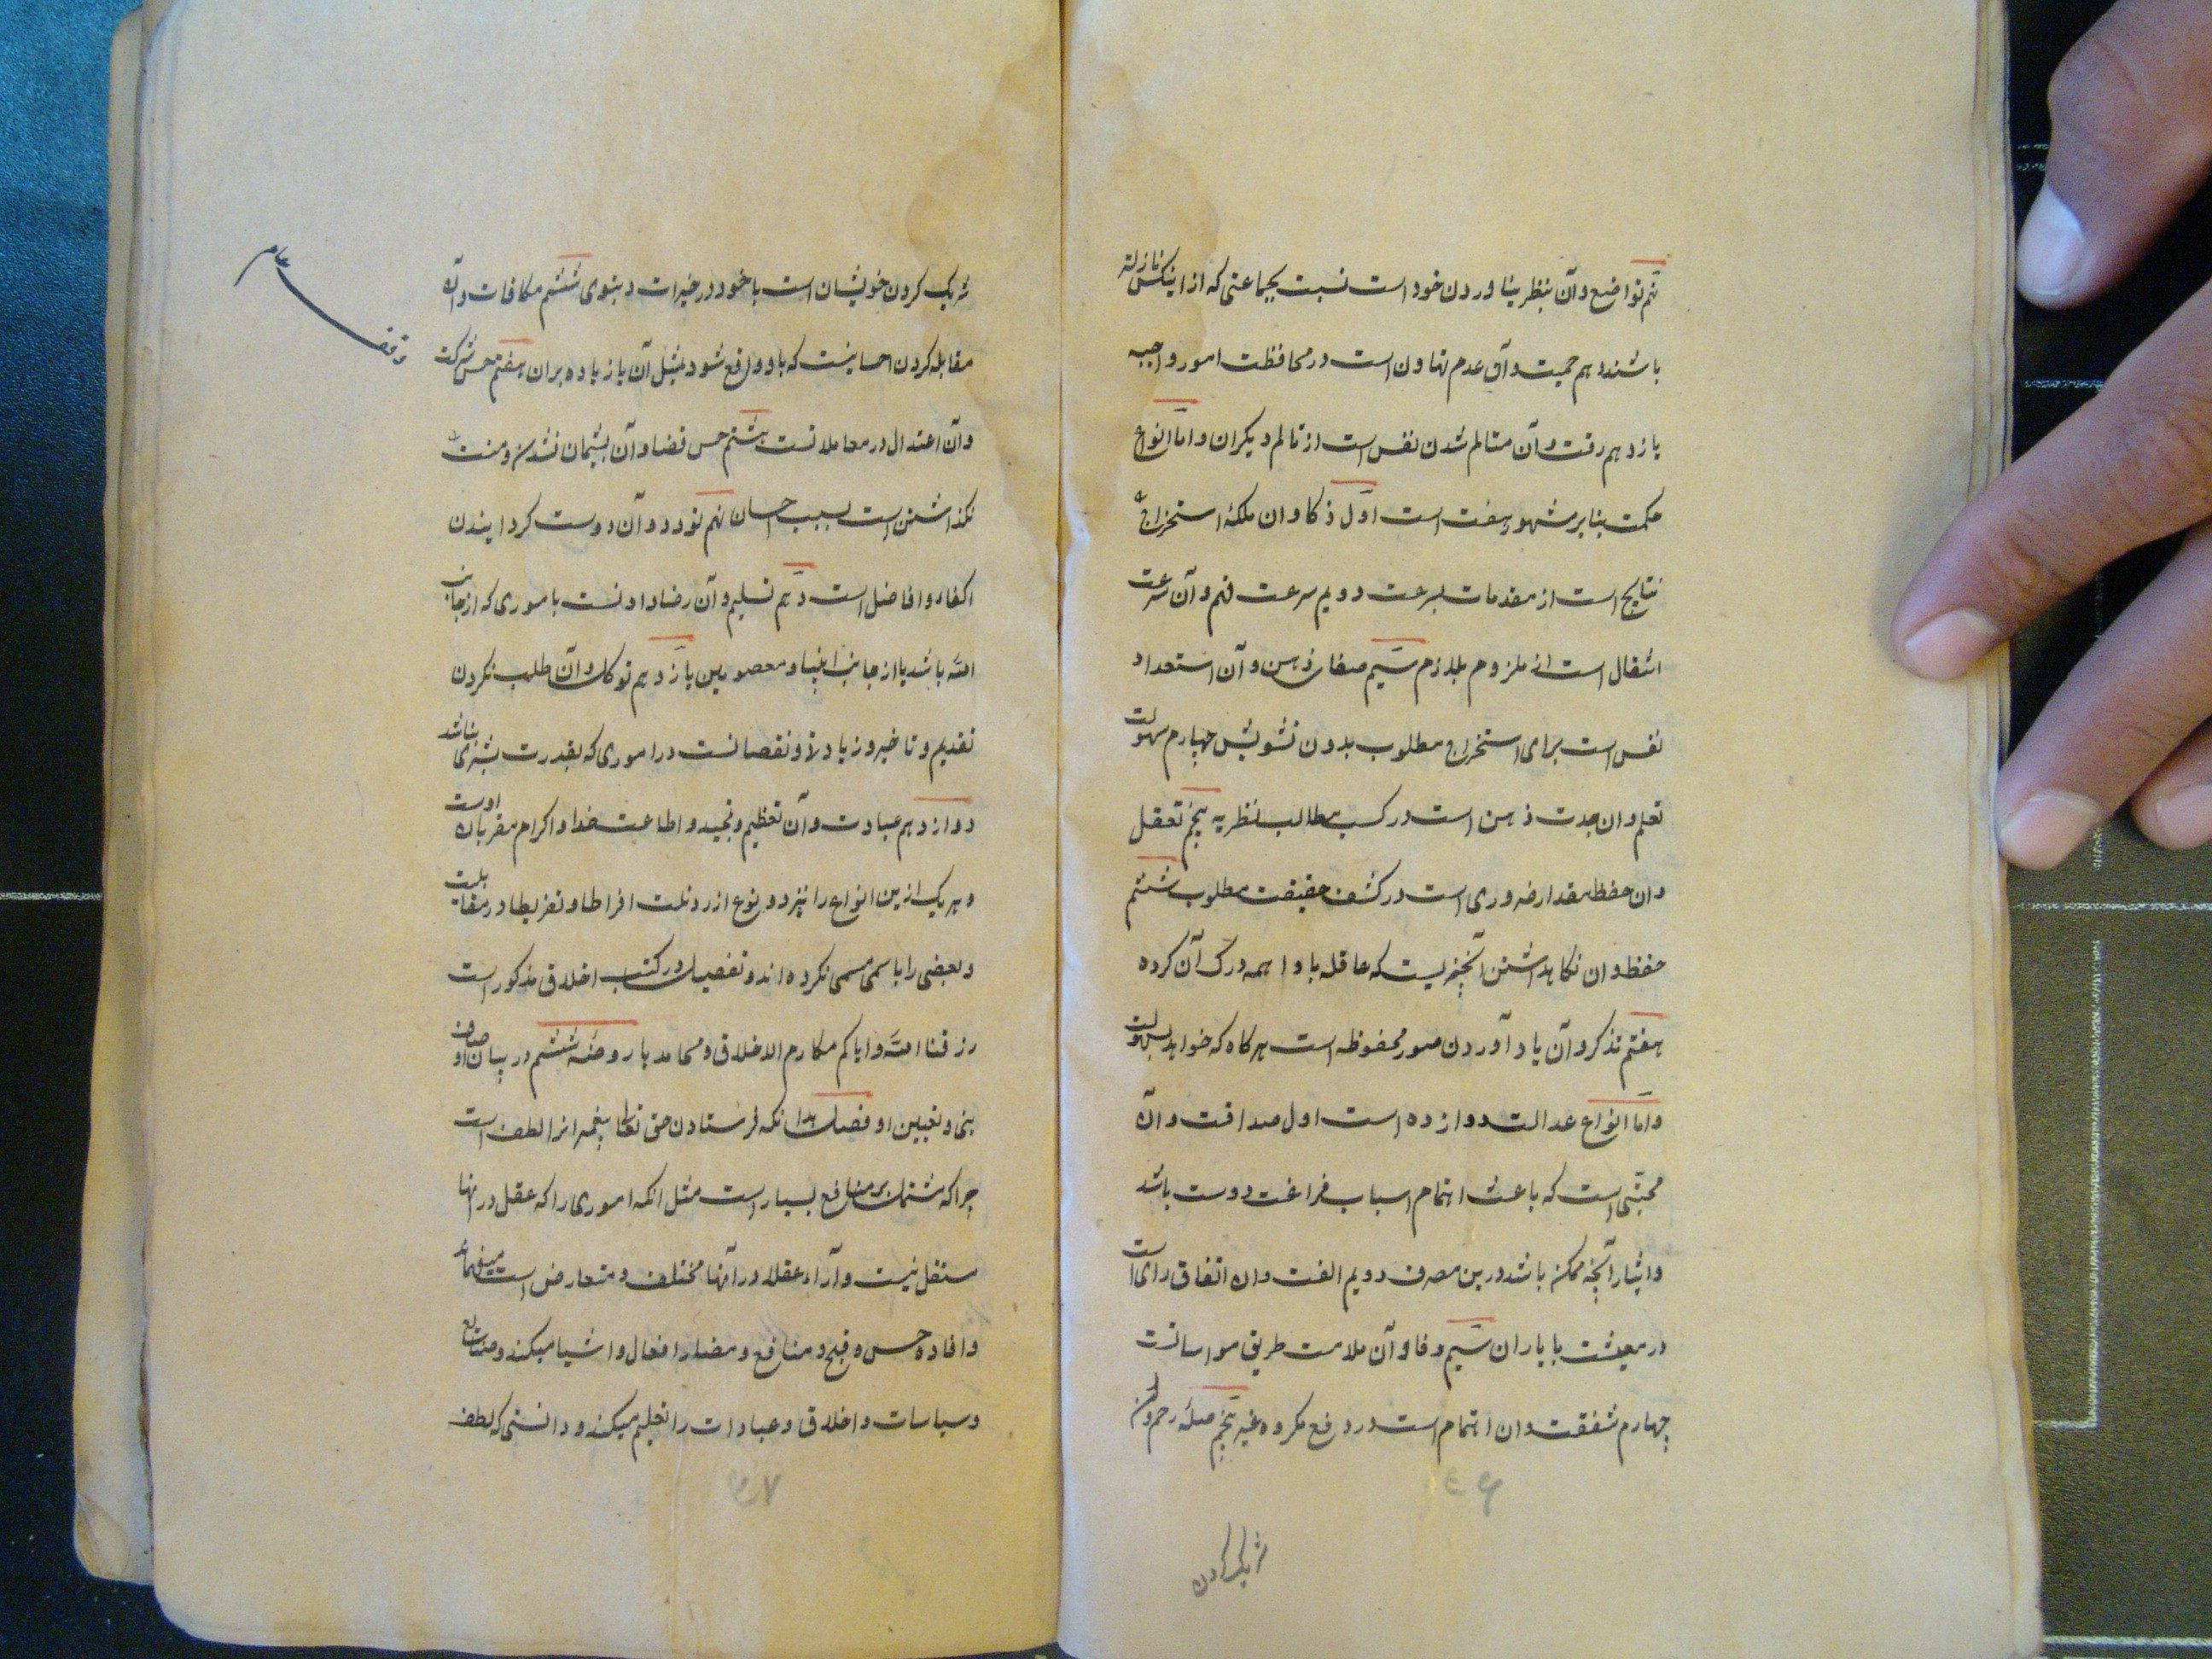 نهم تواضع و آن بنظر نیاوردن خود است نسبت بجماعتی که از اینکس نازلتر
باشند دهم حمیت و آن عدم تهاون است در محافظت امور واجبه
یازدهم رقت و آن متالم شدن نفس است از تالم دیکران و اما انواع
حکمت بنابر مشهور هفت است اول ذکا و ان ملکهٔ استخراج
نتایج است از مقدمات بسرعت دویم سرعت فهم و آن سرعت
انتقال است از ملزوم بلازم سیم صفای ذهن و آن استعداد
نفس است برای استخراج مطلوب بدون تشویش چهارم سهولت
تعلم و ان حدت ذهن است در کسب مطالب نظریه پنجم تعقل
و ان حفظ مقدار ضروری است در کشف حقیقت مطلوب ششم
حفظ و ان نکاهداشتن آنچیزیست که عاقله یا واهمه درک آن کرده
هفتم تذکر و آن یاد آوردن صور محفوظه است هرکاه که خواهد بسهولت
و اما انواع عدالت دوازده است اول صداقت و آن
محبتی است که باعث اهتمام اسباب فراغت دوست باشد
و ایثار آنچه ممکن باشد درین مصرف دویم الفت و ان اتفاق رای است
در معیشت با یاران سیم وفا و آن ملازمت طریق مواساتست
چهارم شفقت و ان اهتمام است در دفع مکروه غیر پنجم صلهٔ رحم و آن
۴۶
شریک کردن
شریک کردن خویشان است با خود در خیرات دینوی ششم مکافات و آن
مقابله کردن احسانیست که باو واقع شود بمثل آن یا زیاده بران هفتم حسن شرکت
و آن اعتدال در معاملاتست هشتم حسن قضا و آن پشیمان نشدن و منت
نکذاشتن است بسبب احسان نهم تودد و آن دوست کردانیدن
اکفاء و افاضل است دهم تسلیم و آن رضا دادنست باموری که از جانب
الله باشد یا از جانب انبیا و معصومین یازدهم توکل و آن طلب نکردن
تقدیم و تاخیر و زیادتی و نقصانست در اموری که بقدرت بشری نباشد
دوازدهم عبادت و آن تعظیم و تمجید و اطاعت خدا و اکرام مقربان اوست
و هر یک ازین انواع را نیز دو نوع از رذیلت افراط و تفریط در مقابلست
و بعضی را باسمی مسمی نکرده اند و تفصیل در کتب اخلاق مذکور است
رزقنا الله و ایاکم مکارم الاخلاق و محامدها روضهٔ ششم در بیان اوصاف
نبی و تعیین او فصل بدانکه فرستادن حق تعالی پیغمبرانرا لطف است
چرا که مشتمل بر منافع بسیار است مثل انکه اموری را که عقل در انها
مستقل نیست و آراء عقلا در آنها مختلف و متعارض است میفهماند
و افاده حسن و قبح و منافع و مضار افعال و اشیا میکند و صنایع
و سیاسات و اخلاق و عبادات را تعلیم میکند و دانستی که لطف
۴۷
وقف عام